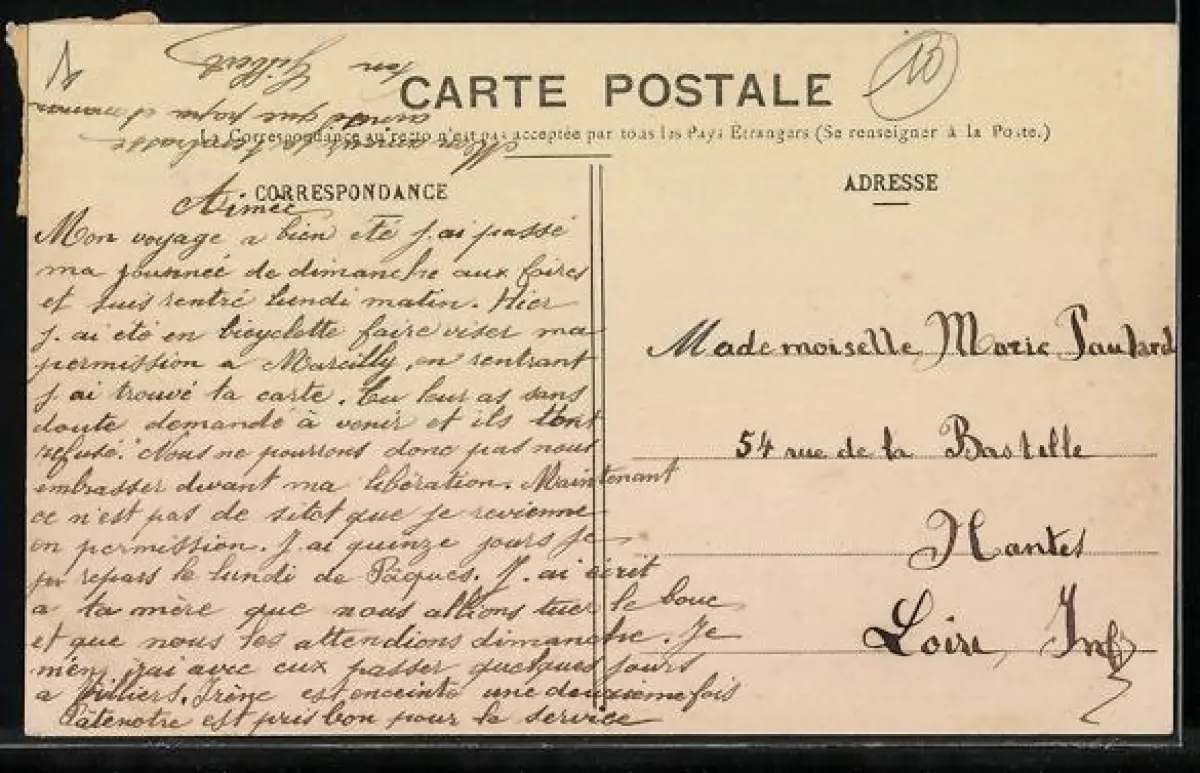 CARTE POSTALE
La Correspondance au recto n'est pas acceptée par tous les Pays Etrangers (Se renseigner à la Poste.)
CORRESPONDANCE
Aimée
Mon voyage a bien été j.ai passé
ma journneé de dimanche aux foires
et suis rentré lundi matin. Hier
j.ai été en bicyclette faire viser ma
permission a Marcilly, en rentrant
j.ai trouvé ta carte. Tu leur as sans
doute demandé à venir et ils t'ont
refusé. Nous ne pourrons donc pas nous
embrasser divant ma libération. Maintenant
ce n'est pas de sitot que je revienne
en permission. J.ai quinze jours je
repars le lundi de Pâques. J.ai écrit
a ta mère que nous allions tuer le bouc
et que nous les attendions dimanche. Je
m'en jrai avec eux passer quelques jours
a Villiers. Irène est enceinte une deuxième fois
Patenotre est pris bon pour le service
ainsi que papa et maman
ton
Gilbert
10
ADRESSE
Mademoiselle Marie Paulard
54 rue de la Bastille
Nantes
Loire Infre